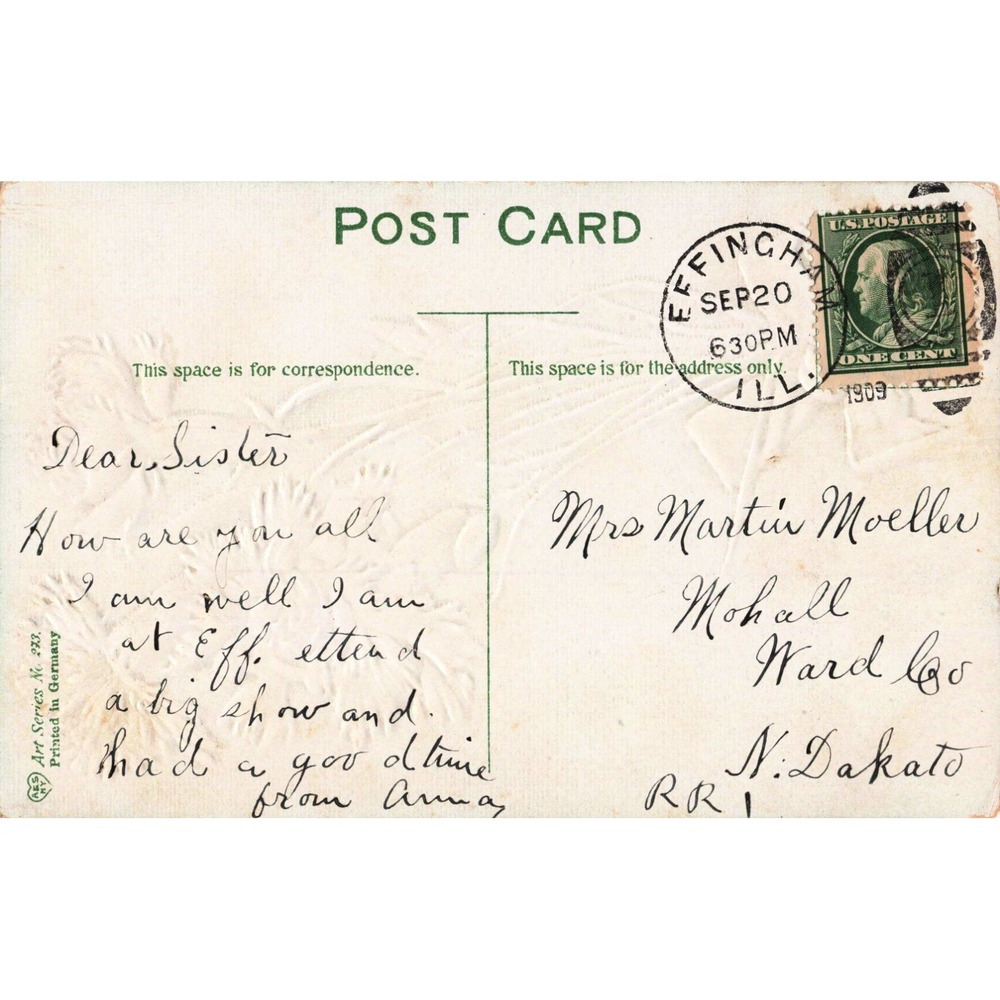 POST CARD
EFFINGHAM
SEP 20
630 PM
ILL.
1909
U.S. POSTAGE
ONE CENT
This space is for correspondence.
This space is for the address only.
Dear, Sister
How are you all
I am well I am
at Eff. ettend
a big show and.
had a good time
from Anna
Mrs Martin Moeller
Mohall
Ward Co
N. Dakato
RR 1
Art Series No. 273.
Printed in Germany